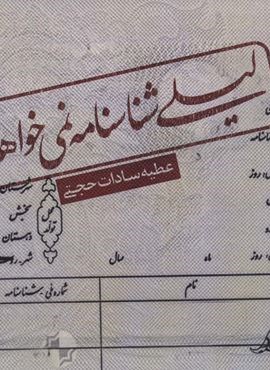 لیلی شناسنامه نمی خواهد
عطیه سادات حجتی
شهرستان
بخش
محل تولد
دهستان
شهر
روز
ماه
سال
روز
نام
شماره ملی شناسنامه